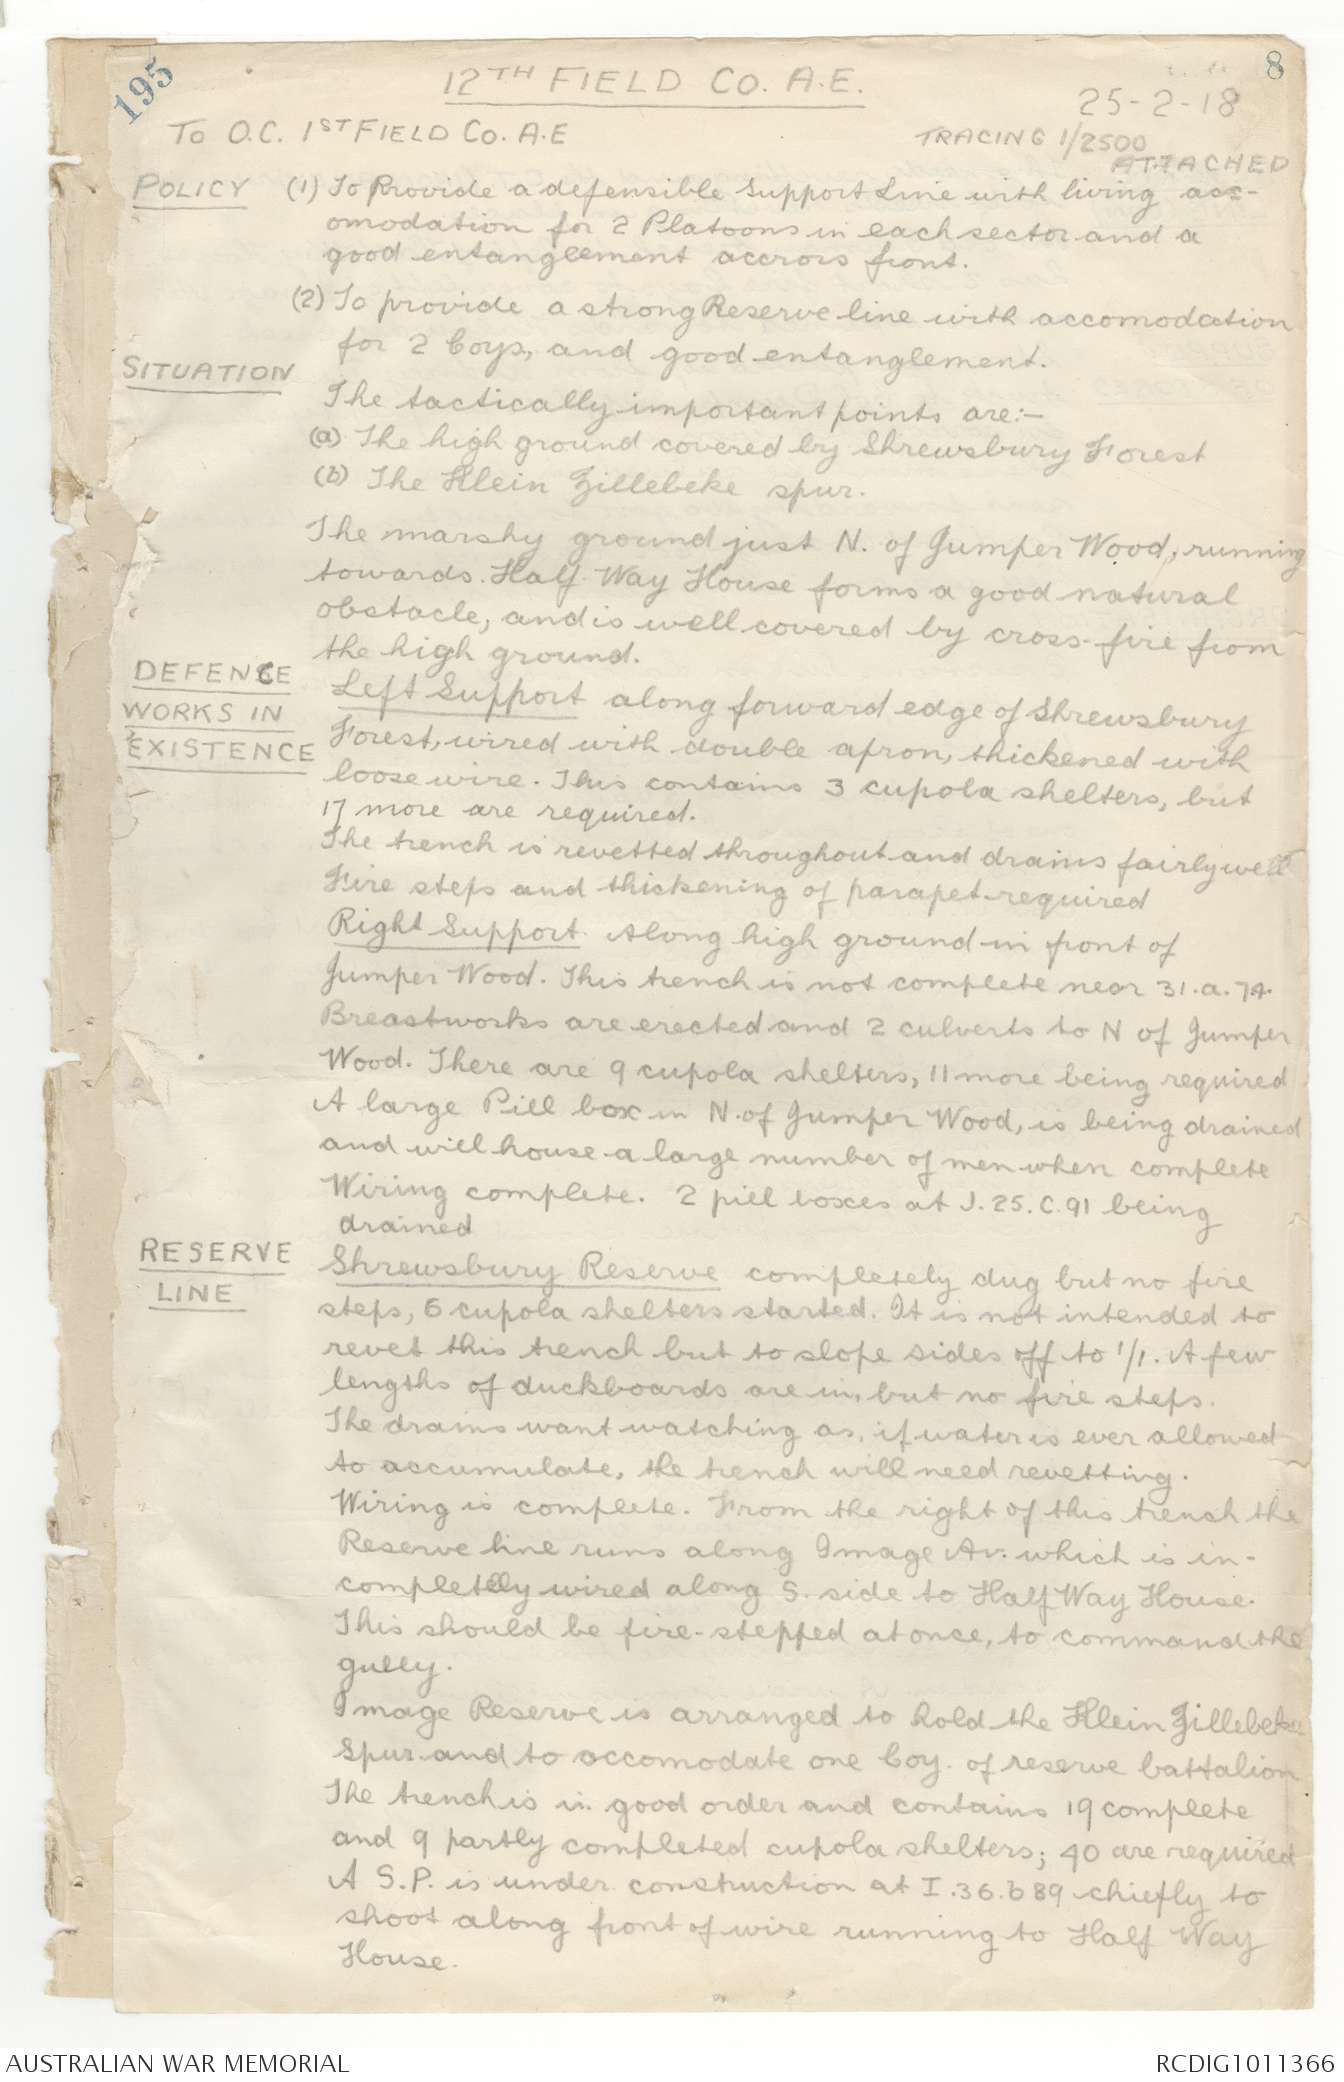 195
8
12TH FIELD CO. A.E.
25-2-18
TO O.C. 1ST FIELD CO. A.E
TRACING 1/2500
ATTACHED
POLICY (1) To Provide a defensible Support Line with living acc-
omodation for 2 Platoons in each sector and a
good entanglement accross front.
(2) To provide a strong Reserve line with accomodation
for 2 Coys, and good entanglement.
SITUATION
The tactically important points are:-
(a) The high ground covered by Shrewsbury Forest
(b) The Klein Zillebeke spur.
The marshy ground just N. of Jumper Wood, running
towards Half Way House forms a good natural
obstacle, and is well covered by cross-fire from
the high ground.
DEFENCE
WORKS IN
EXISTENCE
Left Support along forward edge of Shrewsbury
Forest, wired with double apron, thickened with
loose wire. This contains 3 cupola shelters, but
17 more are required.
The trench is revetted throughout and drains fairly well
Fire steps and thickening of parapet required
Right Support. Along high ground in front of
Jumper Wood. This trench is not complete near 31.a.74.
Breastworks are erected and 2 culverts to N of Jumper
Wood. There are 9 cupola shelters, 11 more being required
A large Pill box in N. of Jumper Wood, is being drained
and will house a large number of men when complete
Wiring complete. 2 pill boxes at J.25.C.91 being
drained
RESERVE
LINE
Shrewsbury Reserve completely dug but no fire
steps, 6 cupola shelters started. It is not intended to
revet this trench but to slope sides off to 1/1. A few
lengths of duckboards are in, but no fire steps.
The drains want watching as, if water is ever allowed
to accumulate, the trench will need revetting.
Wiring is complete. From the right of this trench the
Reserve line runs along Image Av. which is in-
completely wired along S. side to Half Way House.
This should be fire-stepped at once, to command the
gully.
Image Reserve is arranged to hold the Klein Zillebeke
Spur and to accomodate one Coy. of reserve battalion
The trench is in good order and contains 19 complete
and 9 partly completed cupola shelters; 40 are required
A S.P. is under construction at I.36.b 89 chiefly to
shoot along front of wire running to Half Way
House.
AUSTRALIAN WAR MEMORIAL
RCDIG1011366